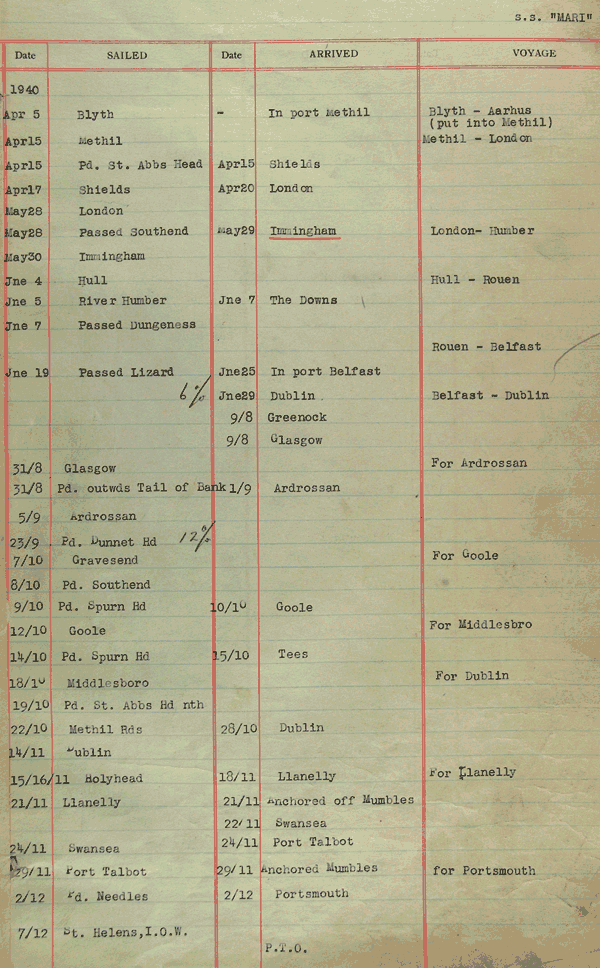 S.S. "MARI"
Date SAILED Date ARRIVED VOYAGE
1940
Apr 5 Blyth - In port Methil Blyth - Aarhus
(put into Methil)
Apr15 Methil Methil - London
Apr15 Pd. St. Abbs Head Apr15 Shields
Apr17 Shields Apr20 London
May28 London
May28 Passed Southend May29 Immingham London- Humber
May30 Immingham
Jne 4 Hull Hull - Rouen
Jne 5 River Humber Jne 7 The Downs
Jne 7 Passed Dungeness
Rouen - Belfast
Jne 19 Passed Lizard Jne25 In port Belfast
6% Jne29 Dublin Belfast - Dublin
9/8 Greenock
9/8 Glasgow
31/8 Glasgow For Ardrossan
31/8 Pd. outwds Tail of Bank 1/9 Ardrossan
5/9 Ardrossan
23/9 Pd. Dunnet Hd 12%
7/10 Gravesend For Goole
8/10 Pd. Southend
9/10 Pd. Spurn Hd 10/10 Goole
12/10 Goole For Middlesbro
14/10 Pd. Spurn Hd 15/10 Tees
18/10 Middlesboro For Dublin
19/10 Pd. St. Abbs Hd nth
22/10 Methil Rds 28/10 Dublin
14/11 Dublin
15/16/11 Holyhead 18/11 Llanelly For Llanelly
21/11 Llanelly 21/11 Anchored off Mumbles
22/11 Swansea
24/11 Swansea 24/11 Port Talbot
29/11 Port Talbot 29/11 Anchored Mumbles for Portsmouth
2/12 Pd. Needles 2/12 Portsmouth
7/12 St. Helens,I.O.W.
P.T.O.